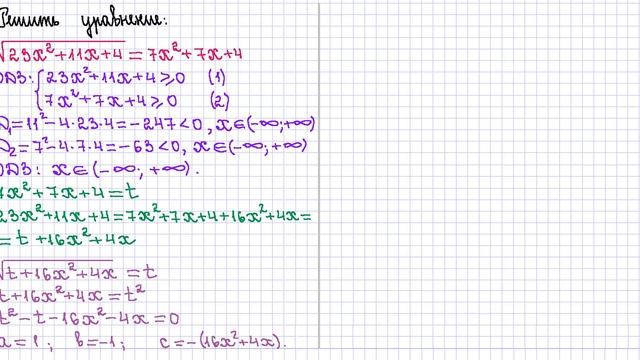 Решить уравнение:
√23x²+11x+4 = 7x²+7x+4
ОДЗ: {23x²+11x+4⩾0 (1)
7x²+7x+4⩾0 (2)
D₁=11²-4·23·4=-247<0, x∈(-∞;+∞)
D₂=7²-4·7·4=-63<0, x∈(-∞;+∞)
ОДЗ: x∈(-∞; +∞).
7x²+7x+4=t
23x²+11x+4=7x²+7x+4+16x²+4x=
=t+16x²+4x
√t+16x²+4x = t
t+16x²+4x=t²
t²-t-16x²-4x=0
a=1; b=-1; c=-(16x²+4x).